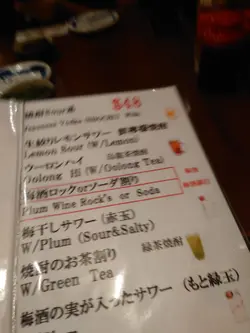 焼酎Sour 系 $48
Japanese Vodka
生絞りレモンサワー
Lemon Sour (W/Lemon)
ウーロンハイ 烏龍茶燒酎
Oolong Hi (W/Oolong Tea)
梅酒ロックorソーダ割り
Plum Wine Rock's or Soda
梅干しサワー (赤玉)
W/Plum (Sour&Salty)
焼酎のお茶割り 緑茶燒酎
W/Green Tea
梅酒の実が入ったサワー (もと緑玉)